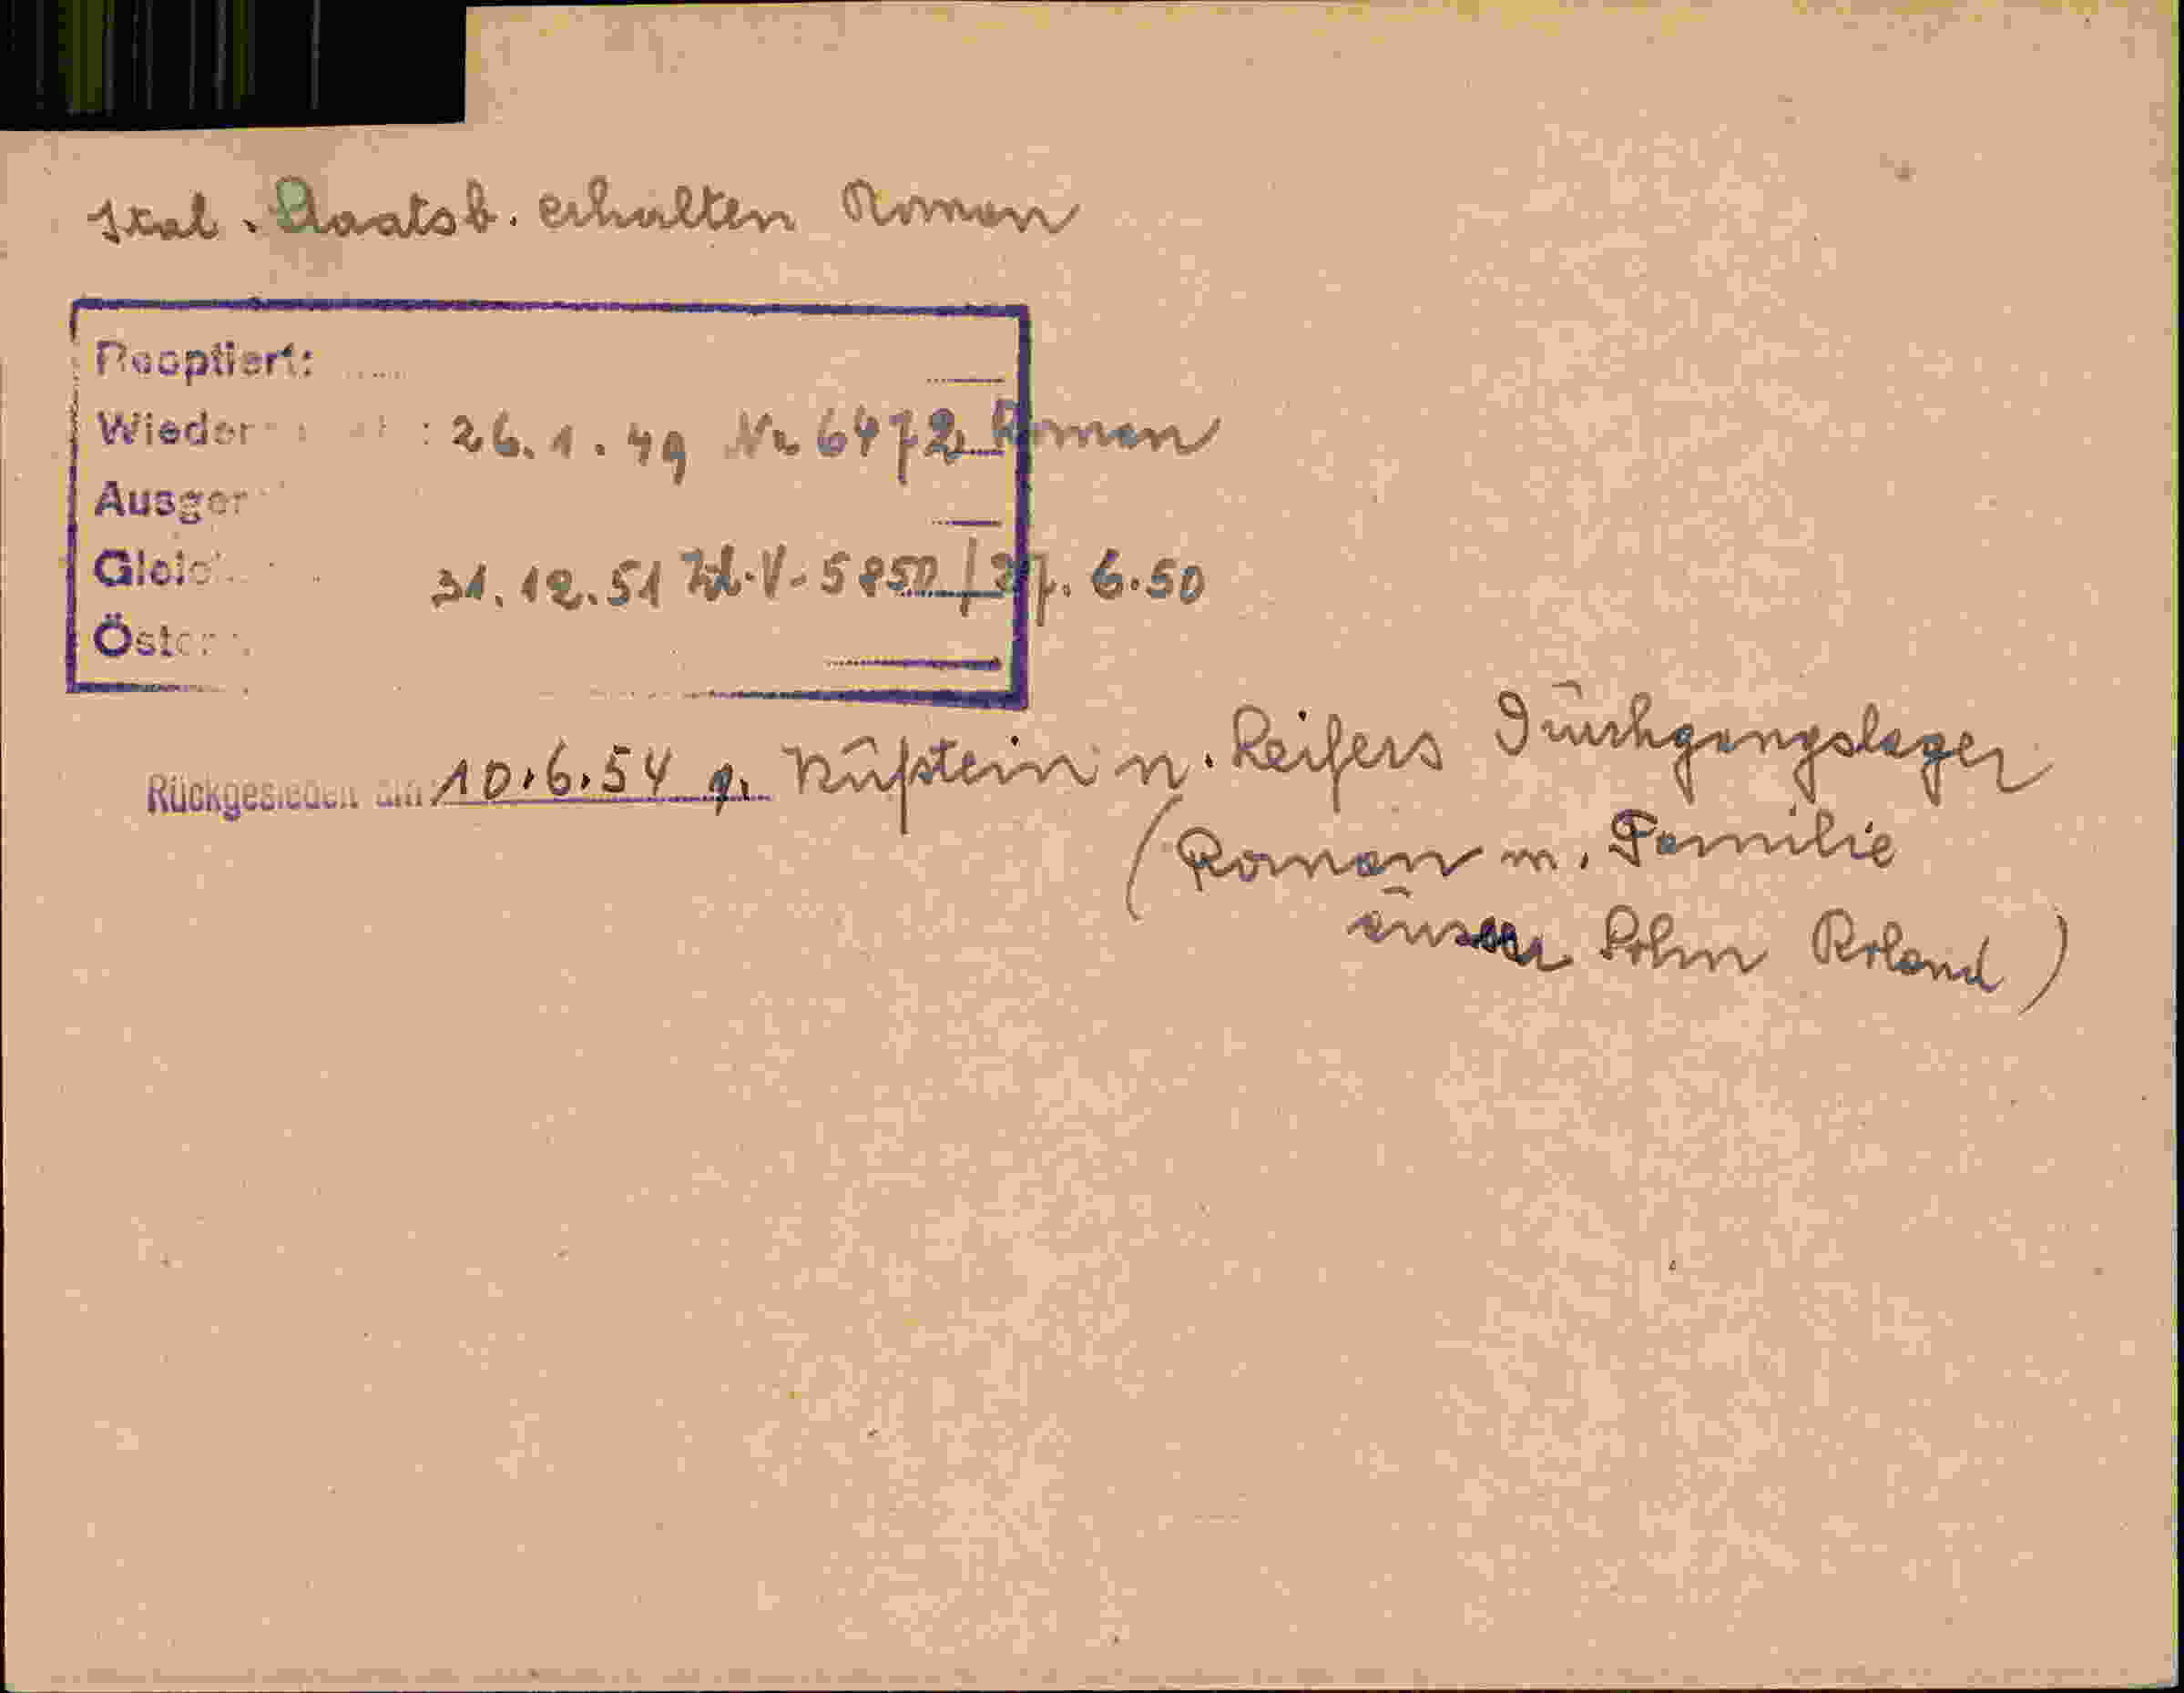 Ital. Staatsb. erhalten Roman
Reoptiert:
Wieder : 26.1.49 Nr 6472 Roman
Ausger
Gleic 31.12.51 Zl. V- 5850 / 6.50
Öster
Rückgesiedelt am 10.6.54 v. Kufstein n. Leifers Durchgangslager
(Roman m. Familie
ausser Sohn Roland)